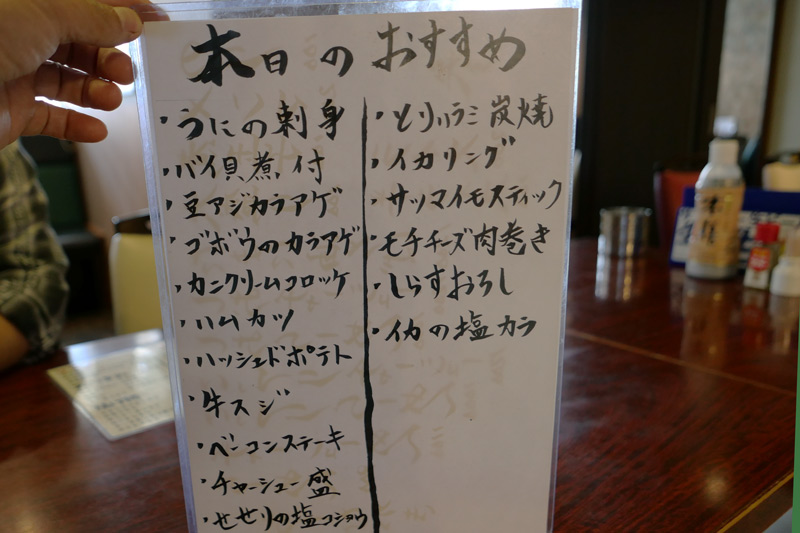 本日のおすすめ
・うにの刺身
・バイ貝煮付
・豆アジカラアゲ
・ゴボウのカラアゲ
・カニクリームコロッケ
・ハムカツ
・ハッシュドポテト
・牛スジ
・ベーコンステーキ
・チャーシュー盛
・せせりの塩コショウ
・とりハラミ炭焼
・イカリング
・サツマイモスティック
・モチチーズ肉巻き
・しらすおろし
・イカの塩カラ